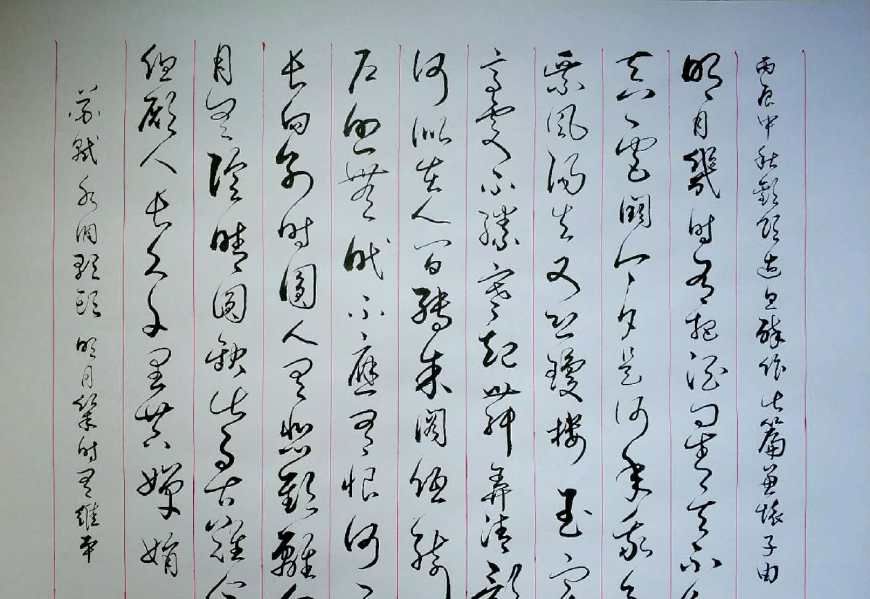 丙辰中秋歡飲達旦大醉作此篇兼懷子由
明月幾時有把酒問青天不
天上宮闕今夕是何年我
乘風歸去又恐瓊樓玉宇
高處不勝寒起舞弄清影
何似在人間轉朱閣低綺
户照無眠不應有恨何
長向別時圓人有悲歡離
月有陰晴圓缺此事古難全
但願人長久千里共嬋娟
蘇軾水調歌頭 明月幾時有